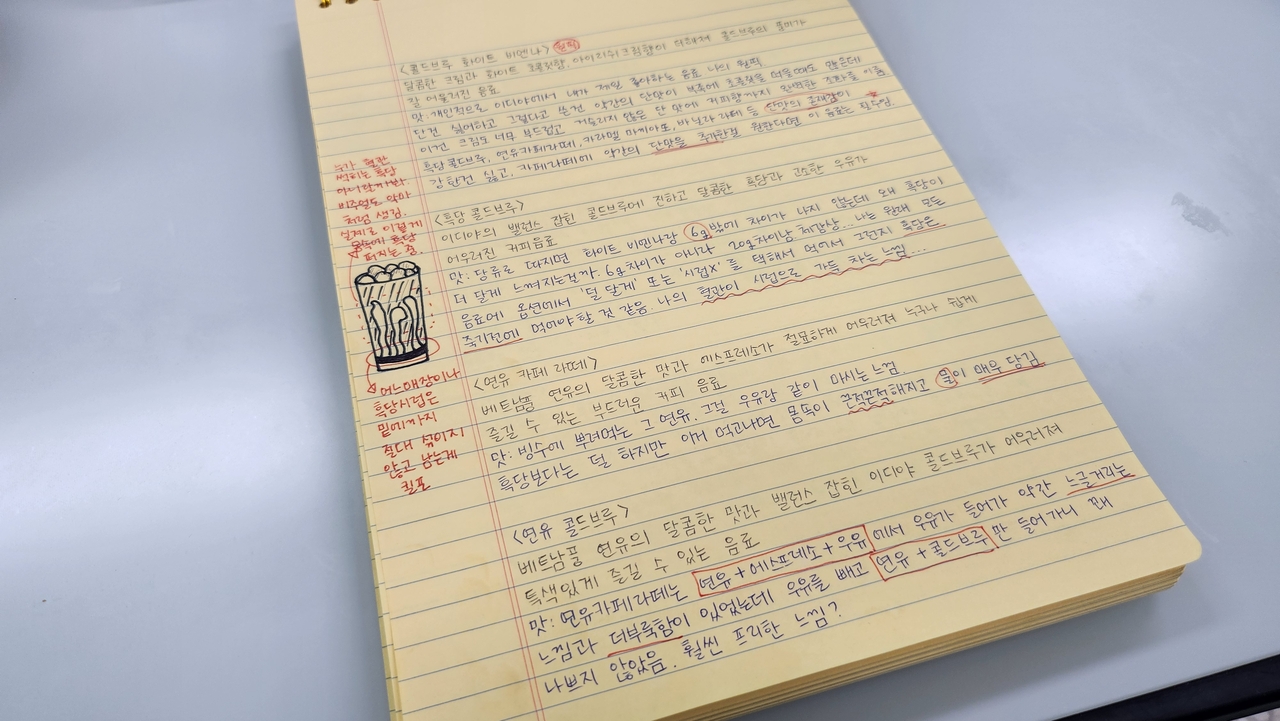 <콜드브루 화이트 비엔나> 원픽
달콤한 크림과 화이트 초콜릿향, 아이리쉬크림향이 더해져 콜드브루의 풍미가
잘 어울러진 음료
맛: 개인적으로 이디야에서 내가 제일 좋아하는 음료 나의 원픽
단건 싫어하고 그렇다고 쓴건 약간의 단맛이 부족해 초콜릿을 떠올때도 많은데
이건 크림도 너무 부드럽고 거슬리지 않은 단 맛에 커피향까지 완연한 조화를 이룸
흑당콜드브루, 연유카페라떼, 카라멜 마끼아또, 바닐라 라떼 등 단맛의 존재감이
강한건 싫고, 카페라떼에 약간의 단맛을 추가한걸 원한다면 이 음료는 필수임
누가 혈관
썩히는 흑당
아니랄까봐
비주얼도 악마
처럼 생김.
실제로 이렇게
흑당
퍼지는 줄
<흑당 콜드브루>
이디야의 밸런스 잡힌 콜드브루에 진하고 달콤한 흑당과 고소한 우유가
어우러진 커피음료
맛: 당류로 따지면 화이트 비엔나랑 6g밖에 차이가 나지 않는데 왜 흑당이
더 달게 느껴지는걸까. 6g차이가 아니라 20g차이남 체감상... 나는 원래 모든
음료에 옵션에서 '덜 달게' 또는 '시럽X'를 택해서 먹어서 그런지 흑당은
죽기전에 먹어야할 것 같음 나의 혈관이 시럽으로 가득 차는 느낌...
어느매장이나
흑당시럽은
밑에까지
절대 섞이지
않고 남는게
킬포
<연유 카페 라떼>
베트남풍 연유의 달콤한 맛과 에스프레소가 절묘하게 어우러져 누구나 쉽게
즐길 수 있는 부드러운 커피 음료
맛: 빙수에 뿌려먹는 그 연유. 그걸 우유랑 같이 마시는 느낌
흑당보다는 덜 하지만 이거 먹고나면 몸뚱이 끈적끈적해지고 물이 매우 당김
<연유 콜드브루>
베트남풍 연유의 달콤한 맛과 밸런스 잡힌 이디야 콜드브루가 어우러져
특색있게 즐길 수 있는 음료
맛: 연유카페라떼는 연유+에스프레소+우유 에서 우유가 들어가 약간 느글거리는
느낌과 더부룩함이 있었는데 우유를 빼고 연유+콜드브루만 들어가니 꽤
나쁘지 않았음. 훨씬 프리한 느낌?